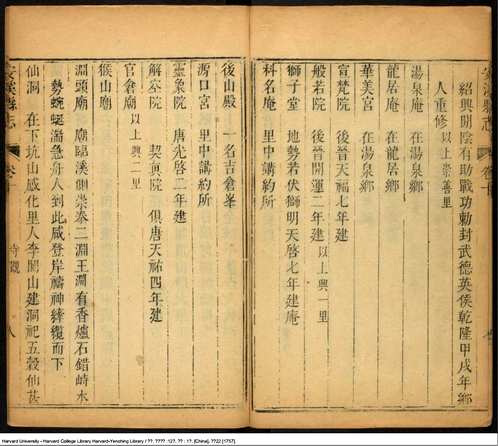 紹興間陰有助戰功勅封武德英侯乾隆甲戌年鄉
人重修以上崇善里
湯泉庵 在湯泉鄉
龍居庵 在龍居鄉
華美宮 在湯泉鄉
宣梵院 後晉天福七年建
般若院 後晉開運二年建以上興一里
獅子堂 地勢若伏獅明天啓七年建庵
科名庵 里中講約所
後山殿 一名吉倉峯
湧口宮 里中講約所
靈泉院 唐光啓二年建
解空院 契真院 俱唐天祐四年建
官倉廟以上興二里
猴山廟
淵頭廟 廟臨溪側崇奉二淵王淵有香爐石錯峙水
勢蜿蜒湍急舟人到此咸登岸禱神縴纜而下
仙洞 在下坑山感化里人李闗山建洞祀五穀仙甚
安溪縣志 卷十 寺觀 八
Harvard University - Harvard College Library Harvard-Yenching Library / ??, ????. 12?. ?? : 1?. [China], ??22 [1757].